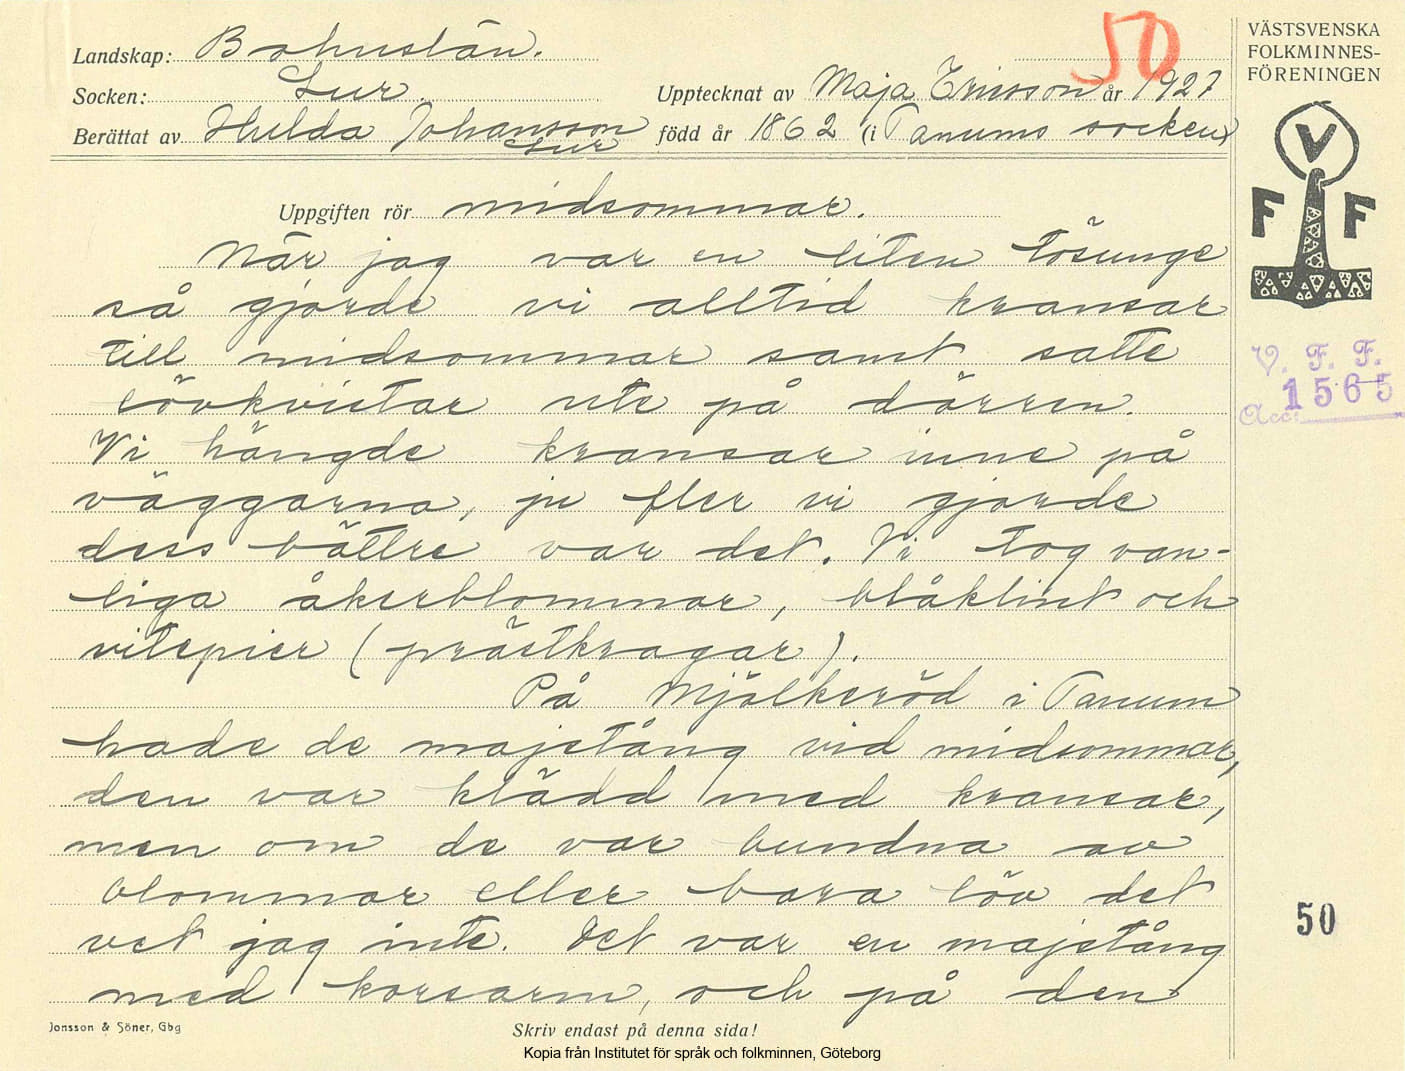 50
VÄSTSVENSKA
FOLKMINNES-
FÖRENINGEN
Landskap: Bohuslän.
Socken: Lur.
Upptecknat av Maja Ericsson år 1927
Berättat av Hulda Johansson
Lur
född år 1862 (i Tanums socken)
V
F F
Uppgiften rör midsommar.
När jag var en liten tösunge
så gjorde vi alltid kransar
till midsommar samt satte
lövkvistar ute på dörren.
Vi hängde kransar inne på
väggarna, ju fler vi gjorde
dess bättre var det. Vi tog van-
liga åkerblommar, blåklint och
vitepier (prästkragar).
På Mjölkeröd i Tanum
hade de majstång vid midsommar,
den var klädd med kransar,
men om de var bundna av
blommar eller bara löv det
vet jag inte. Det var en majstång
med korsarm, och på den
V. F. F.
1565
Acc:
50
Jonsson & Söner, Gbg
Skriv endast på denna sida!
Kopia från Institutet för språk och folkminnen, Göteborg